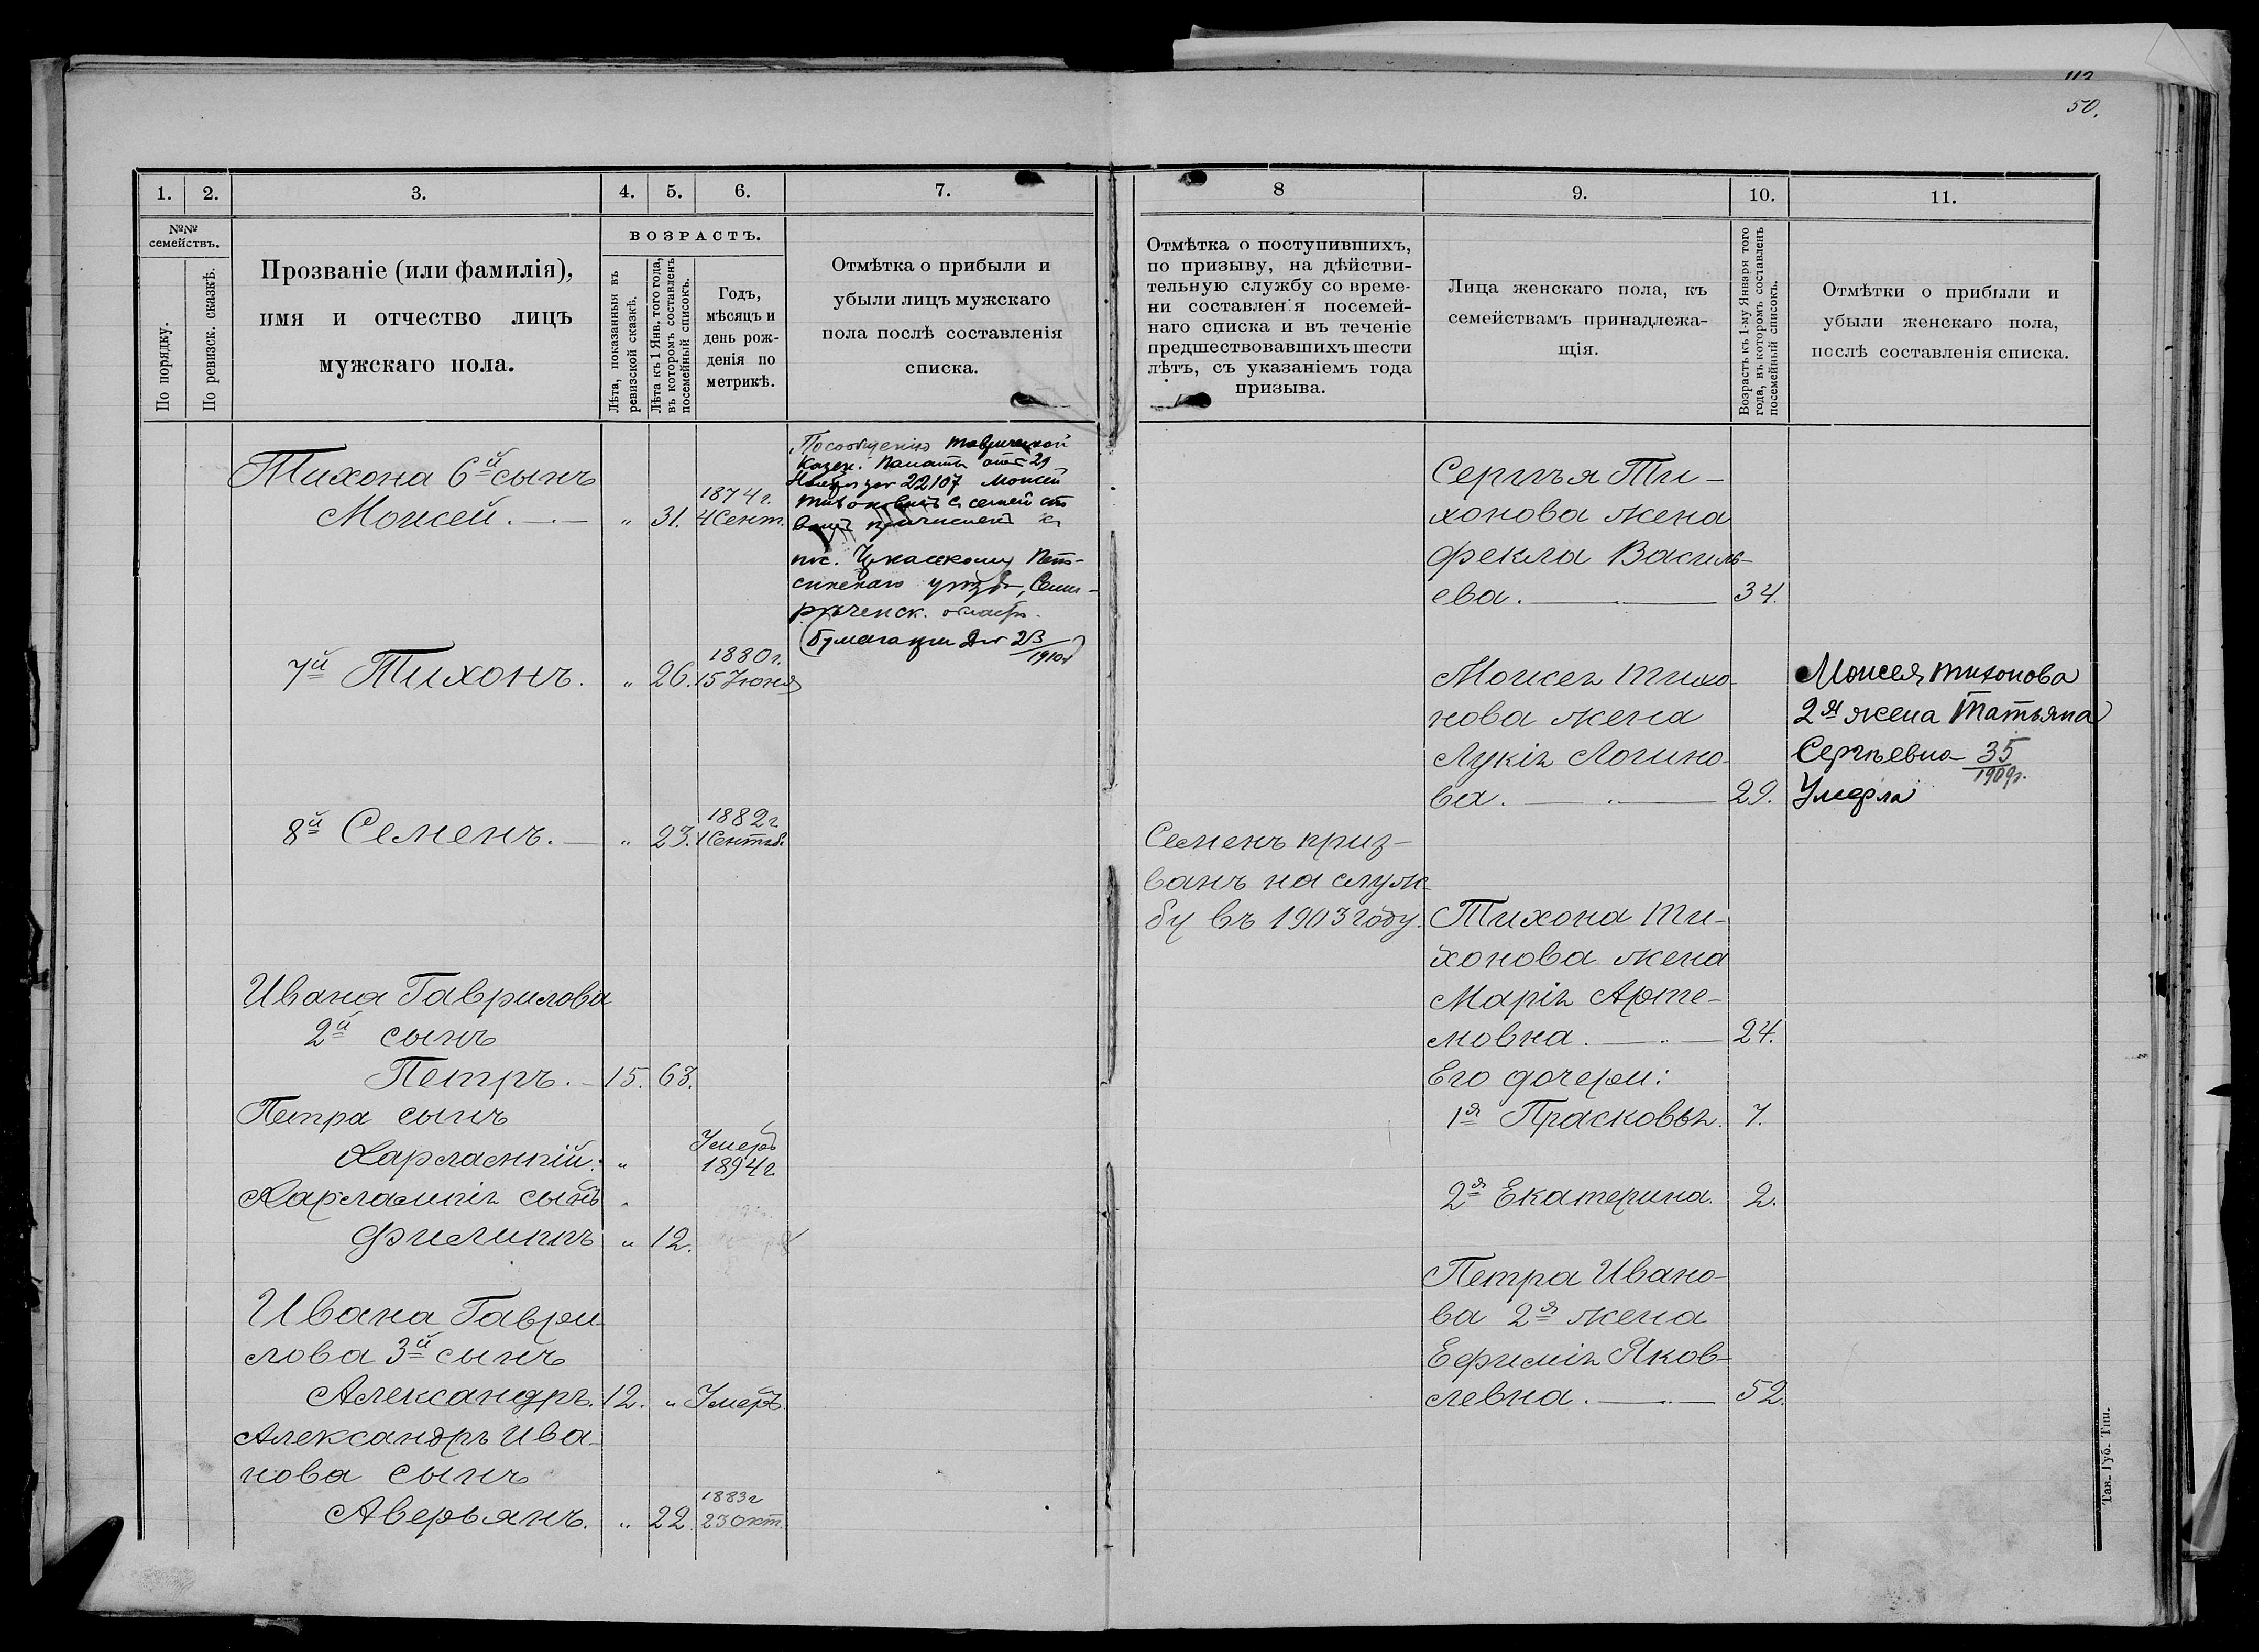 112
50.
1. 2. 3. 4. 5. 6. 7.
№№ семействъ.
По порядку.
По ревизск. сказкѣ.
Прозваніе (или фамилія),
имя и отчество лицъ
мужскаго пола.
ВОЗРАСТЪ.
Лѣта, показанныя въ
ревизской сказкѣ.
Лѣта къ 1 Янв. того года,
въ которомъ составленъ
посемейный списокъ.
Годъ,
мѣсяцъ и
день рож-
денія по
метрикѣ.
Отмѣтка о прибыли и
убыли лицъ мужскаго
пола послѣ составленія
списка.
Тихона 6й сынъ
Моисей. " 31. 1874 г. 4 Сент.
По сообщенію Таврической
Казен. Палаты отъ 29
Ноября за № 22107 Моисей
Тихоновъ съ семейст
вомъ причисленъ къ
пос.
уѣзда, Семи-
рѣченск. области.
1910
7й Тихонъ. " 26. 1880 г. 15 Іюня
8й Семенъ. " 23. 1882 г 1 Сентяб.
Ивана Гаврилова
2й сынъ
Петръ. 15. 63.
Петра сынъ
Харлампій. " Умеръ 1894 г
Харлампія сынъ "
Филиппъ " 12.
Ивана Гаври
лова 3й сынъ
Александръ. 12. " Умеръ.
Александръ Ива-
нова сынъ
Аверьянъ. " 22. 1883 г 23 Окт.
8 9. 10. 11.
Отмѣтка о поступившихъ,
по призыву, на дѣйстви-
тельную службу со време-
ни составленія посемей-
наго списка и въ теченіе
предшествовавшихъ шести
лѣтъ, съ указаніемъ года
призыва.
Лица женскаго пола, къ
семействамъ принадлежа-
щія.
Возрастъ къ 1-му Января того
года, въ которомъ составленъ
посемейный списокъ.
Отмѣтки о прибыли и
убыли женскаго пола,
послѣ составленія списка.
Семенъ приз-
ванъ на служ-
бу въ 1903 году.
Сергѣя Ти-
хонова жена
Фекла Василь-
ева. 34.
Моисея Тихо-
нова жена
Лукія Логино-
ва. 29.
Моисея Тихонова
2я жена Татьяна
Сергѣевна 35
1909 г.
Умерла
Тихона Ти-
хонова жена
Марія Арте-
мовна. 24.
Его дочери:
1я Прасковья. 7.
2я Екатерина. 2.
Петра Ивано-
ва 2я жена
Ефимія Яков-
левна. 52.
Тав. Губ. Тип.